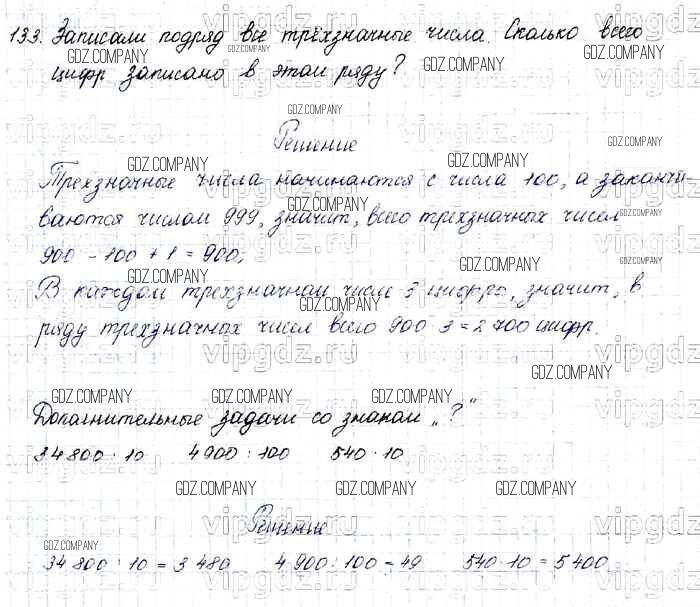 133. Записали подряд все трёхзначные числа. Сколько всего
цифр записано в этом ряду?
Решение
Трехзначные числа начинаются с числа 100, а заканчи-
ваются числом 999, значит, всего трёхзначных чисел
900 - 100 + 1 = 900,
В каждом трехзначном числе 3 цифры, значит, в
ряду трехзначных чисел всего 900 · 3 = 2 700 цифр.
Дополнительные задачи со знаком „?"
34 800 : 10 4 900 : 100 540 · 10
Решение
34 800 : 10 = 3 480 4 900 : 100 = 49 540 · 10 = 5 400
GDZ.COMPANY
vipgdz.ru